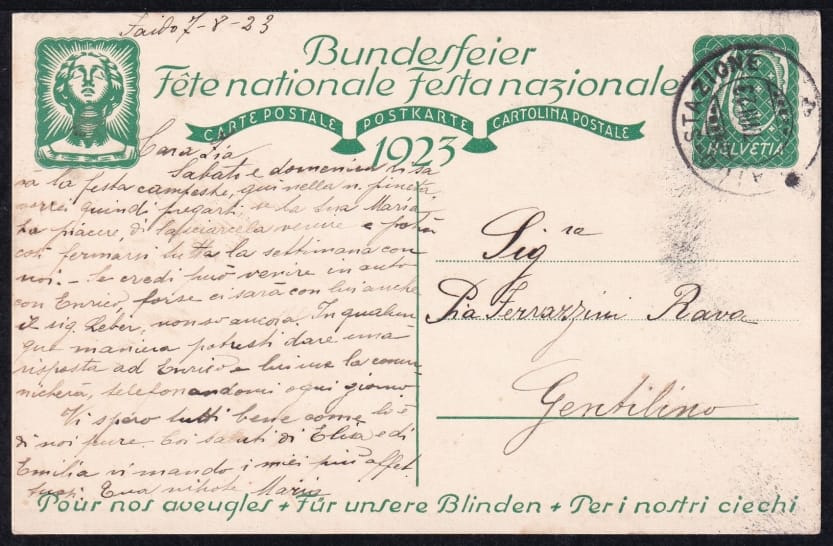 Faido 7-8-23
Bundesfeier
Fête nationale Festa nazionale
CARTE POSTALE POSTKARTE CARTOLINA POSTALE
1923
HELVETIA
STAZIONE
Cara Zia
Sabato e domenica vi sa
rà la festa campestre, qui nella n. pineta
vorrei quindi pregarti se la tua Maria
ha piacere di lasciarcela venire e potrà
così fermarsi tutta la settimana con
noi. - Se credi può venire in auto
con Enrico, forse ci sarà con lui anche
il sig. Leber, non so ancora. In qualun
que maniera potresti dare una
risposta ad Enrico e lui me la comu-
nicherà, telefonandomi ogni giorno
Vi spero tutti bene come lo è
di noi pure. Coi saluti di Elisa e di
Emilia vi mando i miei più affet
tuosi. Tua nipote Maria
Sig ra
Pia Ferrazzini Rava
Gentilino
Pour nos aveugles + Für unsere Blinden + Per i nostri ciechi